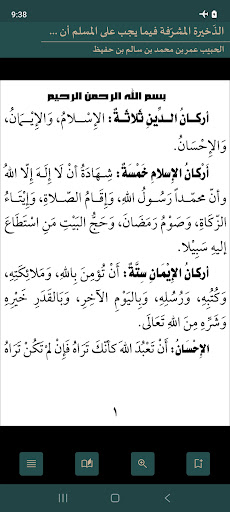 9:38
الذخيرة المشرّفة فيما يجب على المسلم أن ...
الحبيب عمر بن محمد بن سالم بن حفيظ
بسم الله الرحمن الرحيم
أركانُ الدِّينِ ثَلاثَةٌ: الإِسْلَامُ، وَالإِيْمَانُ،
وَالإِحْسَانُ.
أَرْكَانُ الإِسلامِ خَمْسَةٌ: شَهَادَةُ أَنْ لَا إِلَهَ إِلَّا اللهُ
وأنّ محمّداً رَسُولُ اللهِ، وَإِقَامُ الصَّلاةِ، وَإِيْتَاءُ
الزّكَاةِ، وَصَوْمُ رَمَضَانَ، وَحَجُّ البَيْتِ مَنِ اسْتَطَاعَ
إِلَيهِ سَبِيْلا.
أركانُ الإِيْمَانِ سِتَّةٌ: أَنْ تُؤمِنَ بِاللهِ، وَمَلائِكَتِهِ،
وَكُتُبِهِ، وَرُسُلِهِ، وَبِاليَوْمِ الآخِرِ، وَبِالقَدَرِ خَيْرِهِ
وَشَرِّهِ مِنَ اللهِ تَعَالَى.
الإِحْسَانُ: أَنْ تَعْبُدَ اللهَ كَأنّكَ تَرَاهُ فَإِنْ لَمْ تَكُنْ تَرَاهُ
١